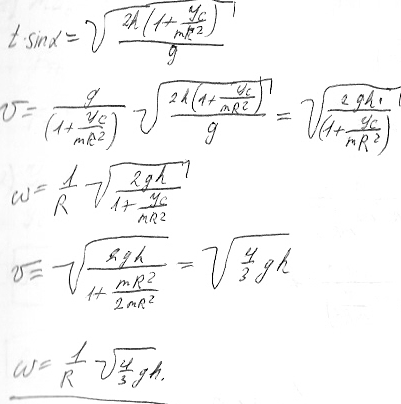 t·sinα = √(2h(1 + Jc/mR²)/g)
v = g/(1 + Jc/mR²) √(2h(1 + Jc/mR²)/g) = √(2gh/(1 + Jc/mR²))
ω = 1/R √(2gh/(1 + Jc/mR²))
v = √(2gh/(1 + mR²/2mR²)) = √(4/3 gh)
ω = 1/R √(4/3 gh).